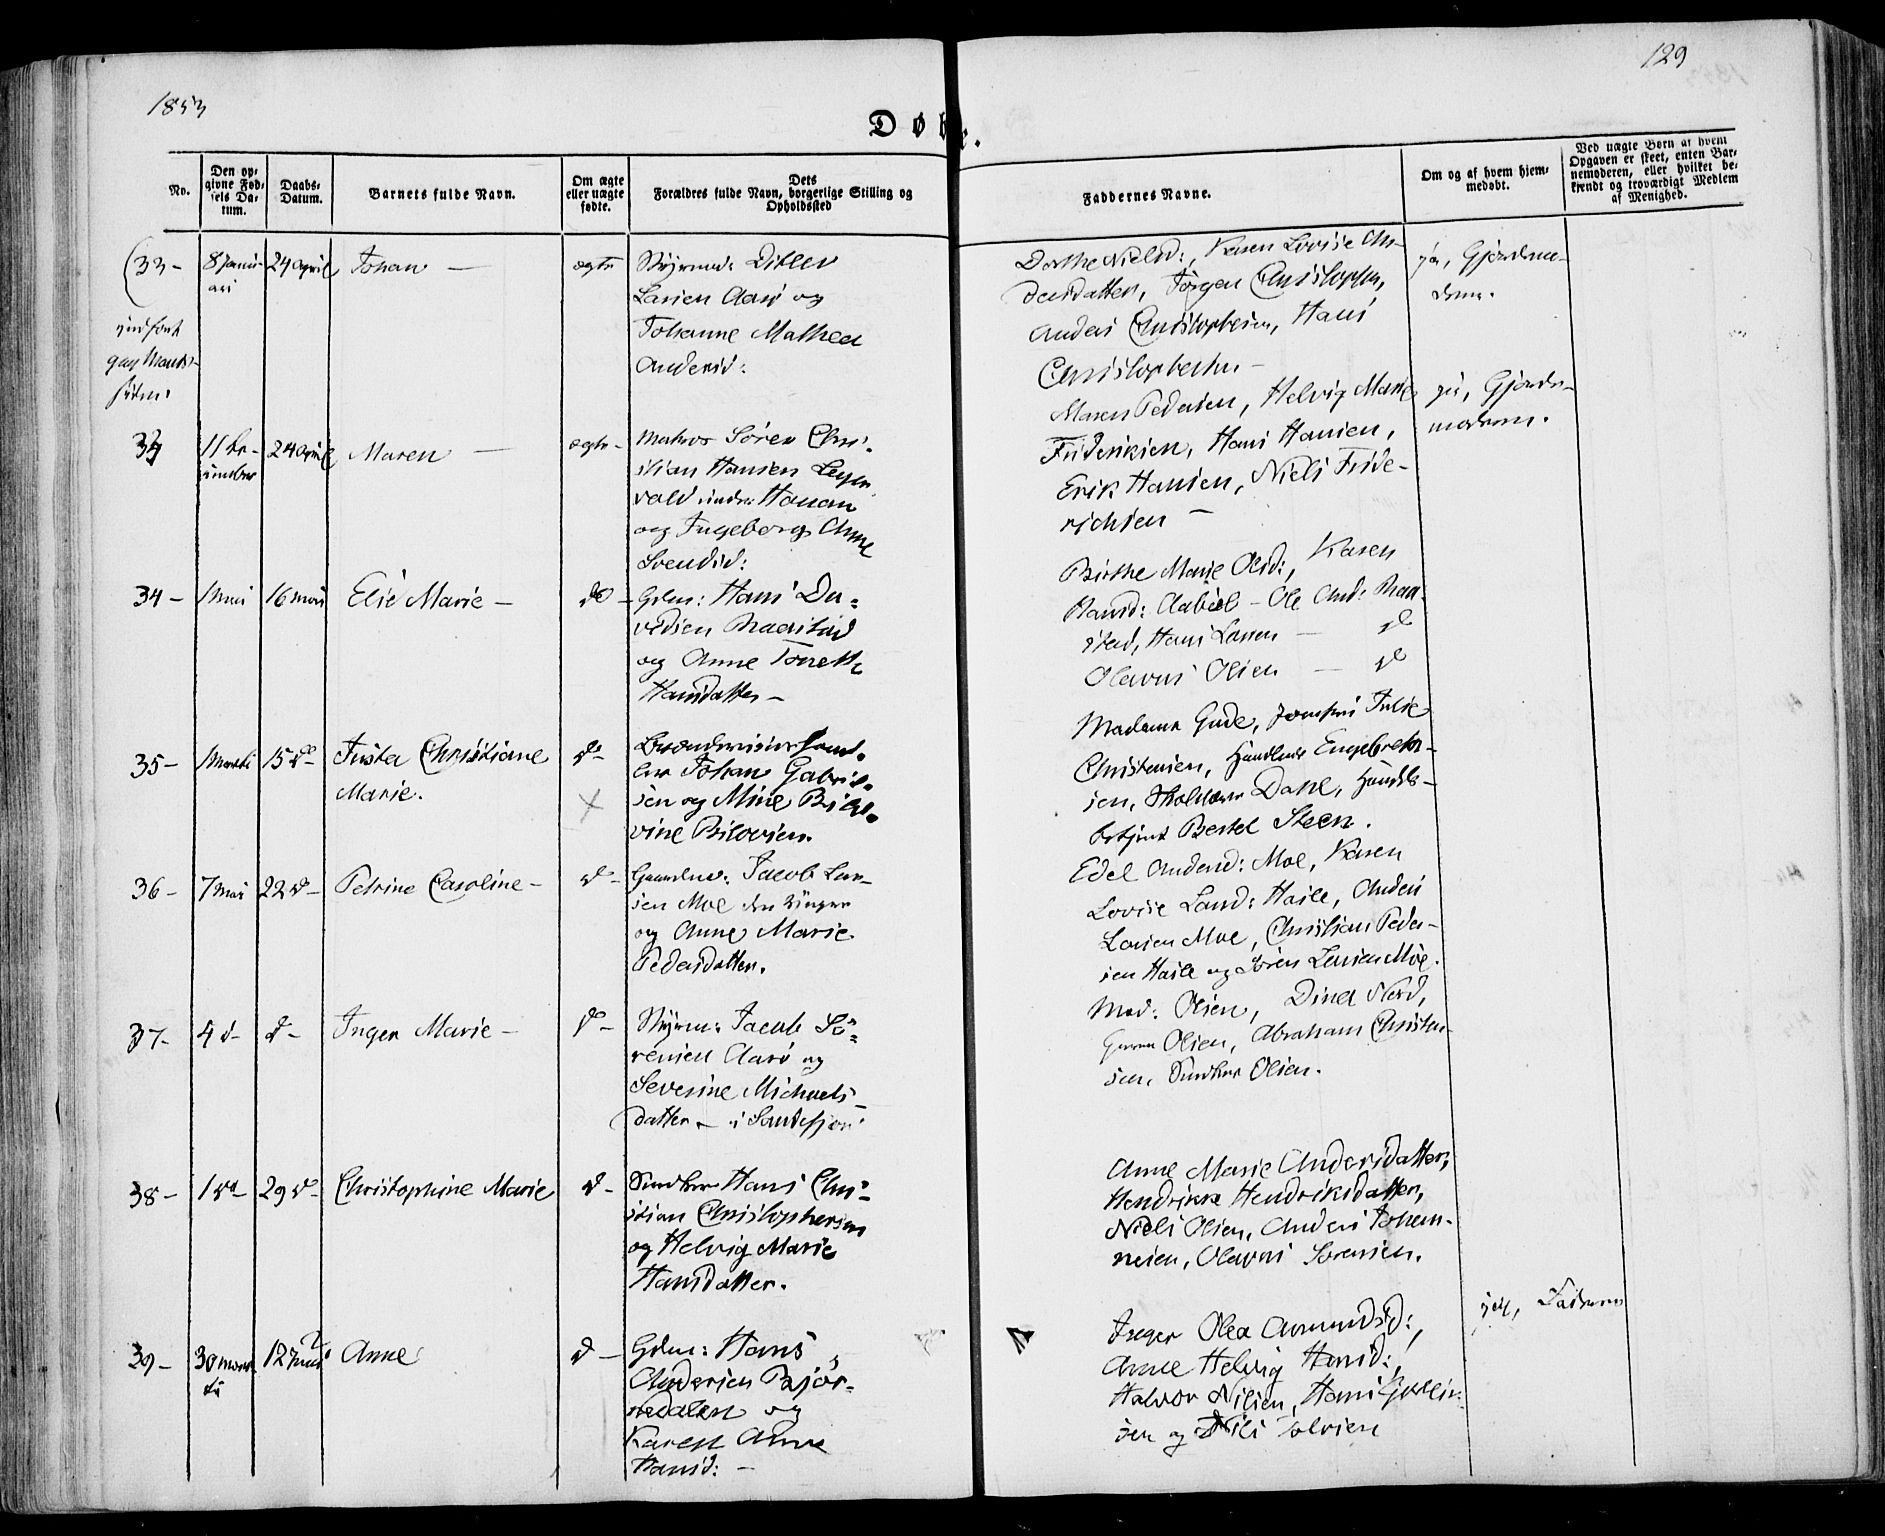 1853
129
Døbte.
No.
Den opgivne Fødsels Datum.
Daabs-Datum.
Barnets fulde Navn.
Om ægte eller uægte fødte.
Dets Forældres fulde Navn, borgerlige Stilling og Opholdssted
Faddernes Navne.
Om og af hvem hjemmedøbt.
Ved uægte Børn af hvem Opgaven er skeet, enten Barnemoderen, eller hvilket bekjendt og troværdigt Medlem af Menighed.
(33 - 8 Janu- 24 April Johan — ægte
ari
Styrmd: Ditlev
Larsen Aarø og
Johanne Mathea
Andersd:
Dorthe Nielsd:, Karen Lovise An-
dersdatter, Jørgen Christophers,
Anders Christophersen, Hans
Christophersen -
ja, Gjordemo-
deren.
34 24 April Maren — ægte -
Matros Søren Chri-
stian Hansen
og Ingeborg Anne
Svendsd:
Maren Pedersen, Helvig Marie
Frideriksen, Hans Hansen,
Erik Hansen, Niels Fride-
richsen —
ja, Gjorde-
moderen.
34 - 1 Mai 16 Mai Elise Marie — do -
Grdm: Hans Da-
vidsen
og Anne Tonette
Hansdatter -
Birthe Marie Olsd:, Karen
Hansd: - Ole And:
stad, Hans Larsen — do
Olavus Olsen — do
35 - Marts 15 do - Justa Christiane do -
Marie.
Johan Gabriel-
sen og Mine
vine
Madame Gude, Jomfru Julie
Christensen, Handlende Engebreth-
sen, Dahl, Handels-
betjent Bertel Steen.
36 - 7 Mai 22 do - Petrine Caroline - do -
Gaardm: Jacob Lar-
sen Moe den Yngre
og Anne Marie
Pedersdatter.
Edel Andersd: Moe, Karen
Lovise Larsd: Hasle, Anders
Larsen Moe, Christian Peder-
sen Hasle og Søren Larsen Moe.
37 - 4 do - do - Inger Marie - do -
Styrm: Jacob Sø-
rensen Aarø og
Severine Michaels-
datter - i Sandefjord
Mad: Olsen, Dina
Olsen, Abraham Christen-
sen, Snedker Olsen.
38 - 1 do - 29 do - Christophine Marie do -
Snedker Hans Chri-
stian Christophersen
og Helvig Marie
Hansdatter.
Anne Marie Andersdatter,
Hendrikke Hendriksdatter,
Niels Olsen, Anders Johan-
nesen, Olavus Sørensen.
39 - 30 Mar- 12 Juni Anne do —
ts
Grdm: Hans
Andersen Bjør-
nedalen og
Karen Anne
Hansd: -
Inger Olea Amundsd:,
Anne Helvig Hansd:,
Halvor Nilsen, Hans
sen og Nils Tolvsen
ja, Faderen